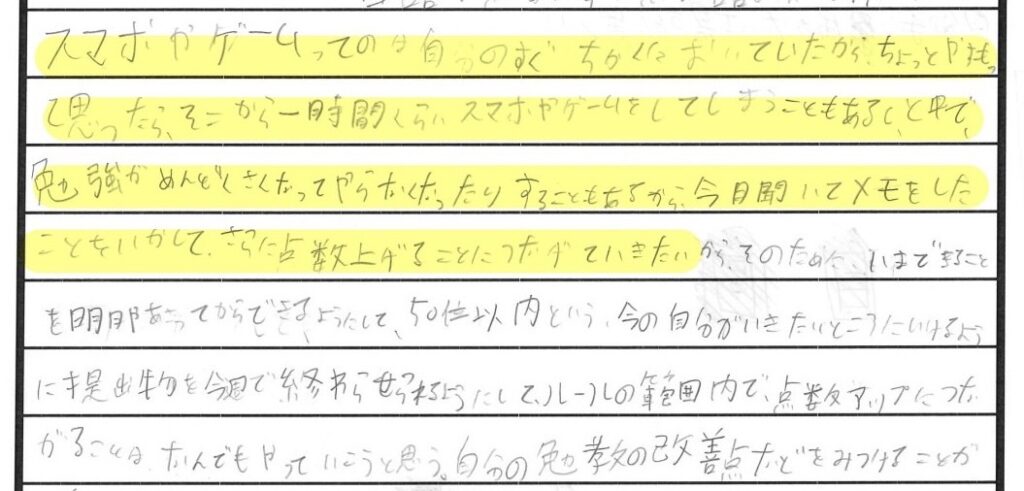 スマホやゲームってのは自分のすぐちかくにおいていたから、ちょっとやすもっ
て思ったら、そこから一時間くらいスマホやゲームをしてしまうこともあるし、と中で、
勉強がめんどくさくなってやらなくなったりすることもあるから、今日聞いてメモをした
ことをいかして、さらに点数上げることにつなげていきたいから、そのために、いまできること
を明日あってからできるようにして、50位以内という、今の自分がいきたいところにいけるよう
に提出物を今週で終わらせられるようにして、ルールの範囲内で、点数アップにつな
がることは、なんでもやっていこうと思う。自分の勉教の改善点などをみつけることが